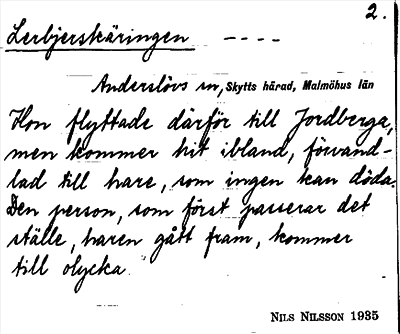 2.
Lerbjerskäringen ----
Anderslövs sn, Skytts härad, Malmöhus län
Hon flyttade därför till Jordberga,
men kommer hit ibland, förvand-
lad till hare, som ingen kan döda.
Den person, som först passerar det
ställe, haren gått fram, kommer
till olycka.
NILS NILSSON 1935